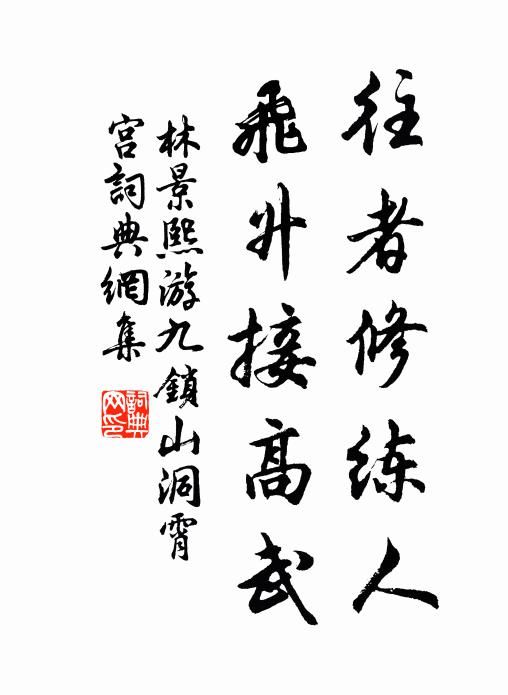 往者修练人
飞升接高武
林景熙游九鎖山洞霄
宫詞典網集
詞典网印